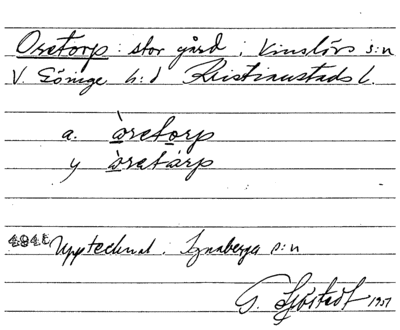 Oretorp: stor gård i Vinslövs s:n
V. Göinge h:d Kristianstads l.
a. òretorp
y òretàrp
4841 Upptecknat i Ignaberga s:n
G. Sjöstedt 1951